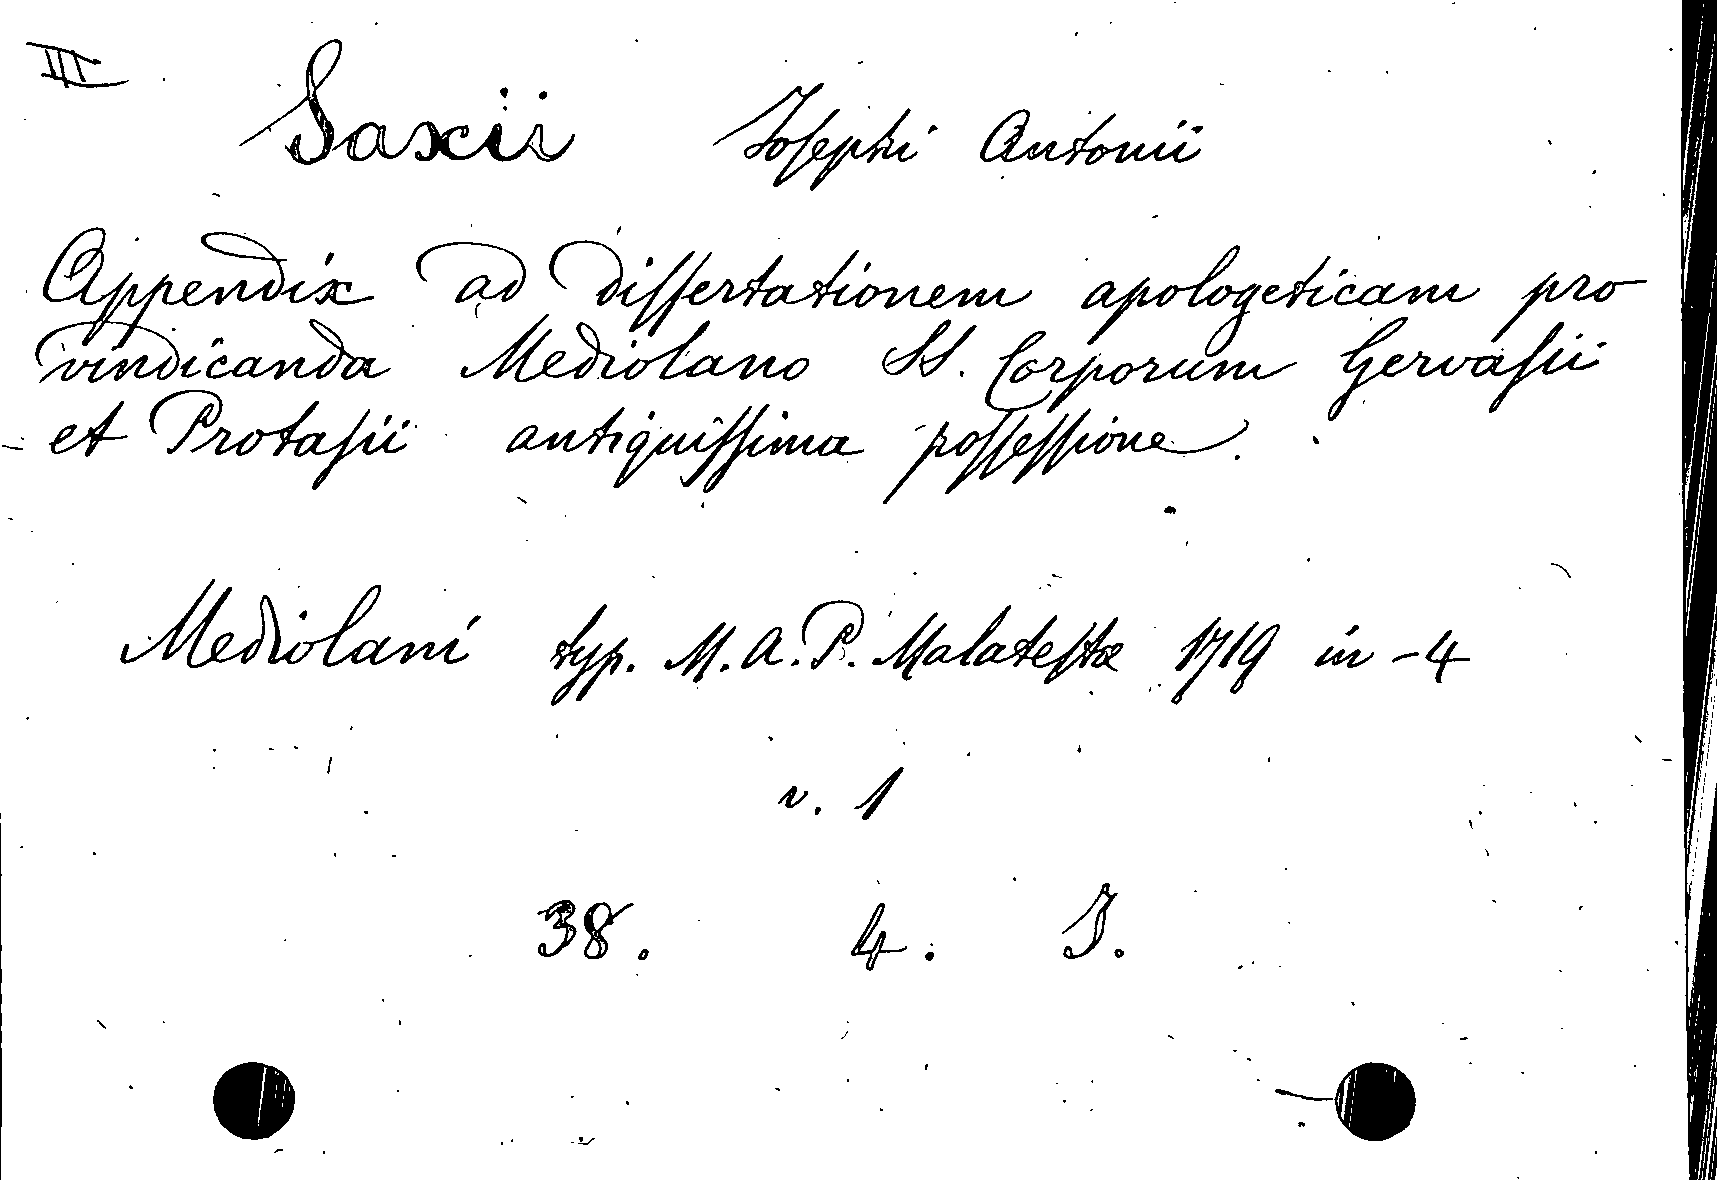 III
Saxii Josephi Antonii
Appendix ad dissertationem apologeticam pro
vindicanda Mediolano SS. Corporum Gervasii
et Protasii antiquissima possessione.
Mediolani typ. M. A. P. Malatestæ 1719 in-4
v. 1
38. 4. J.